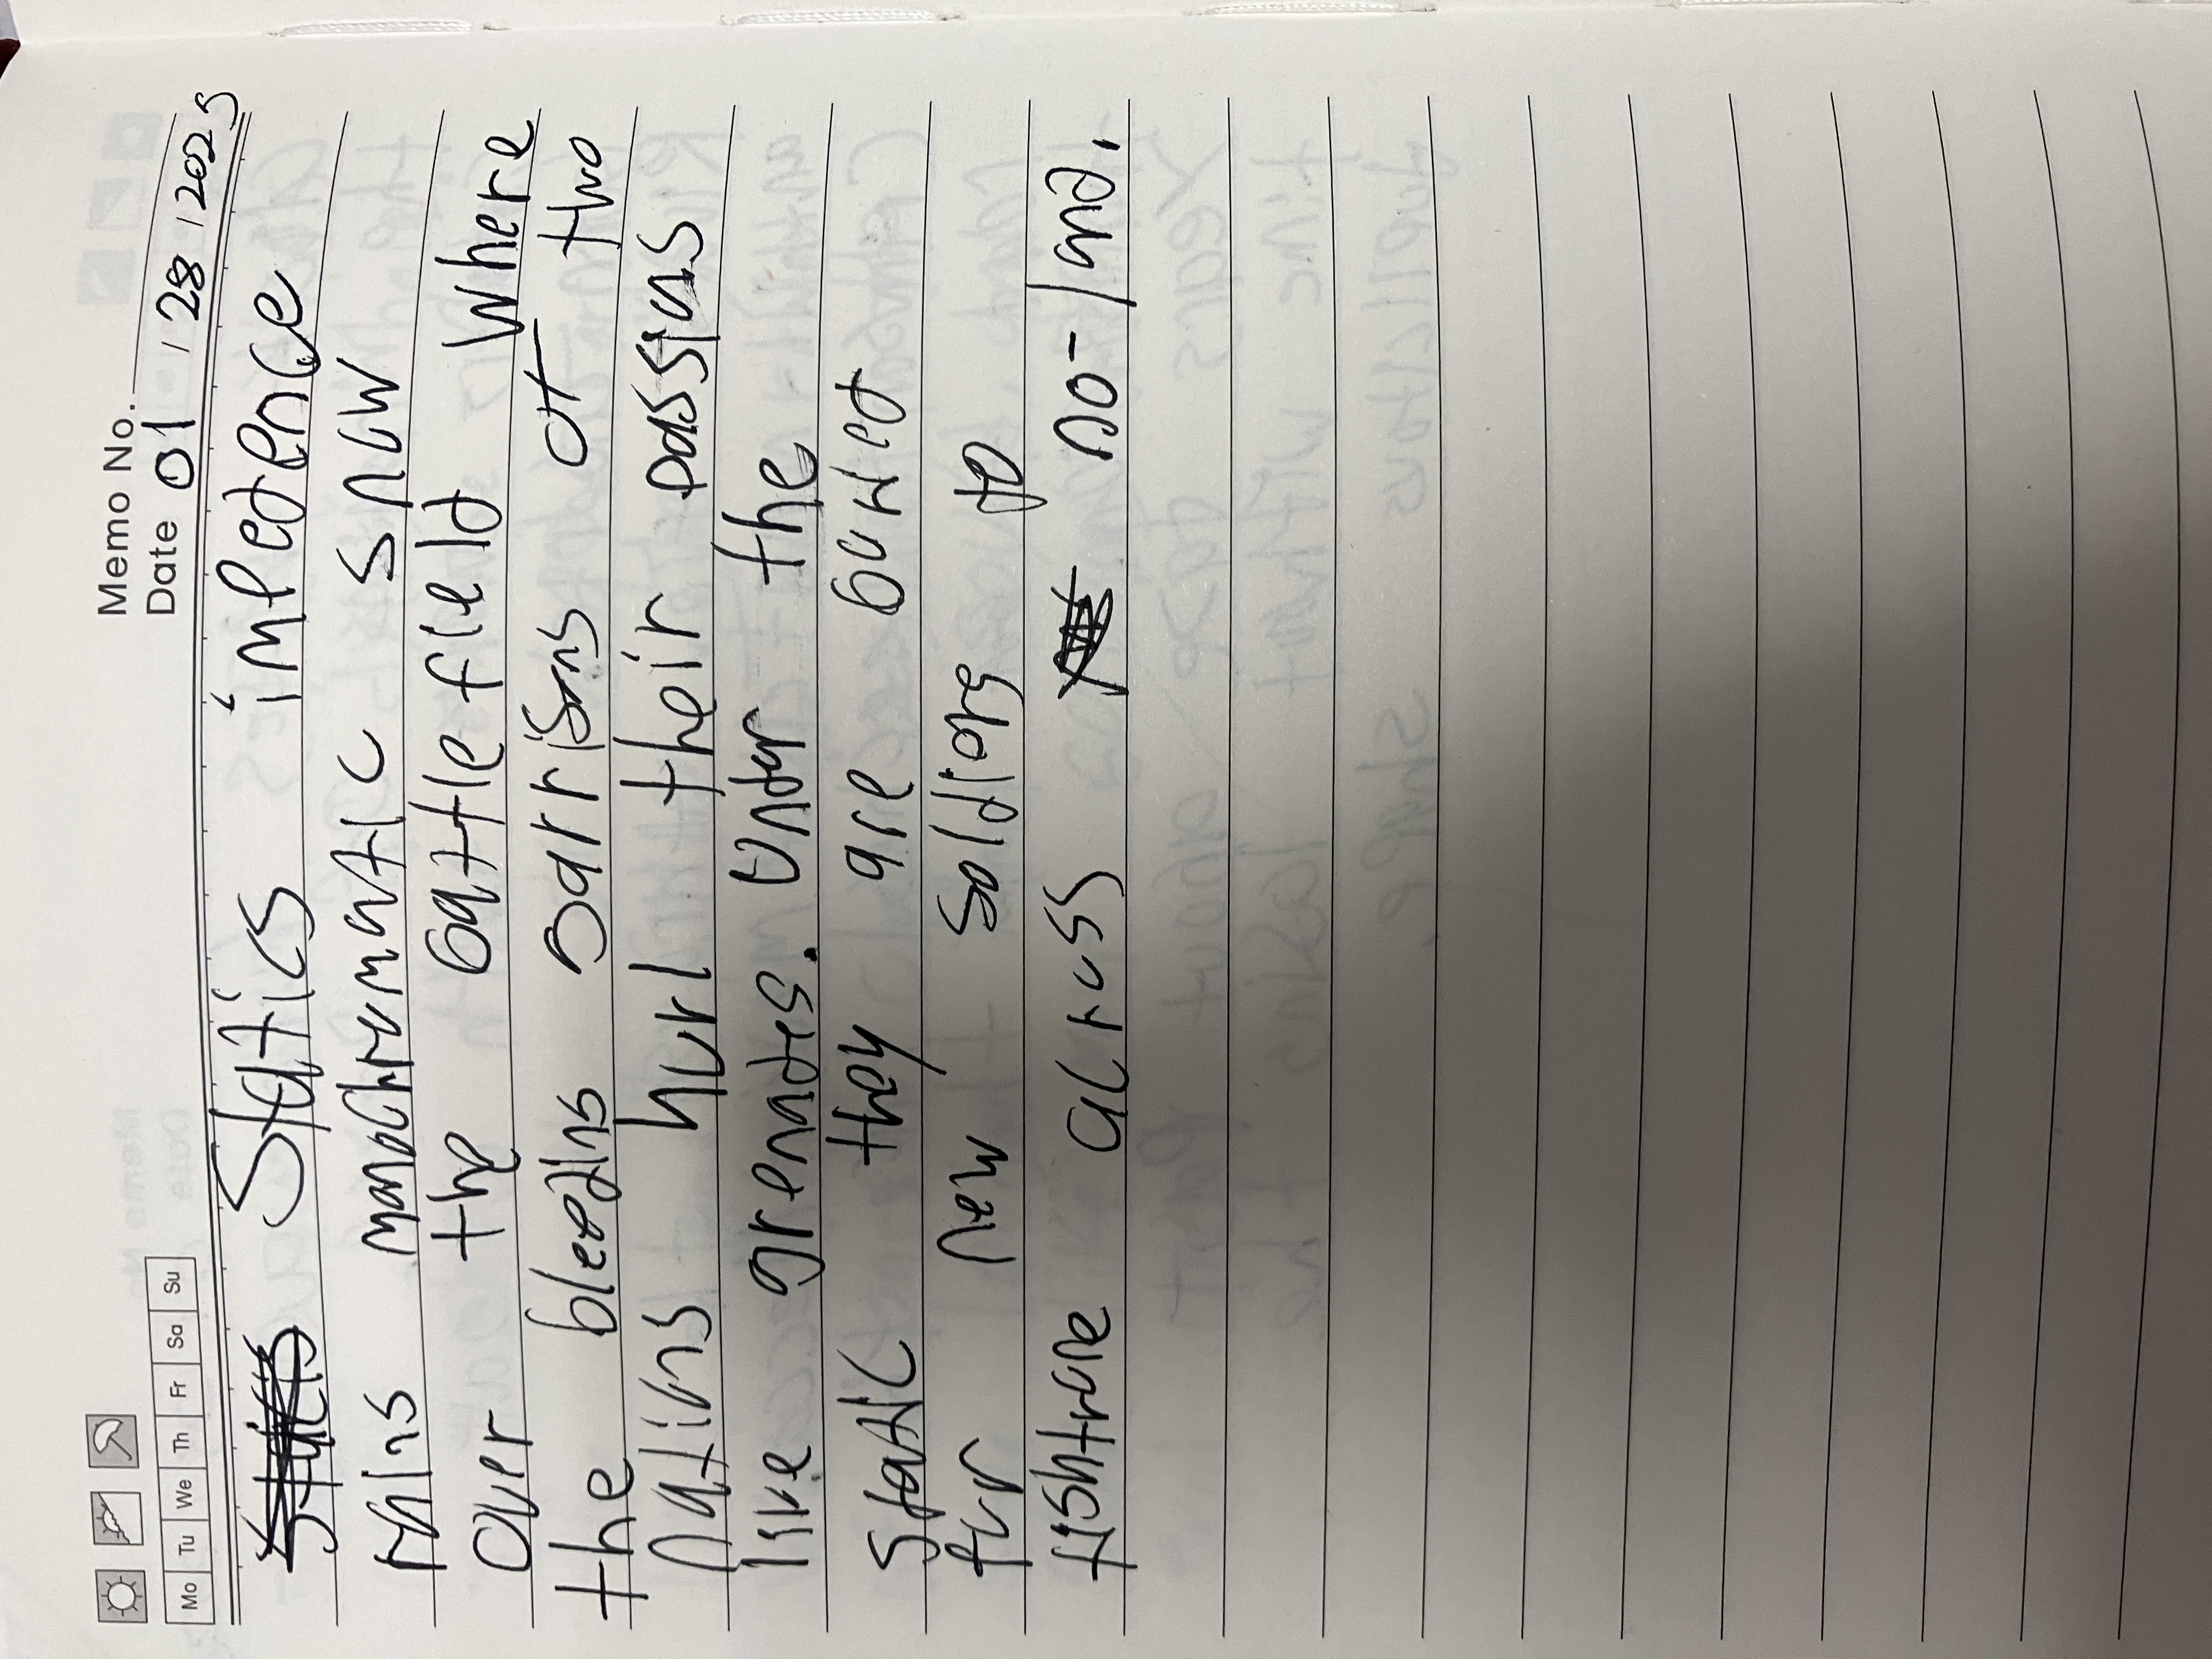 Memo No.
Date 01 / 28 / 2025
Mo Tu We Th Fr Sa Su
Statics impedence
rains monochromatic snow
over the battlefield where
the bleeding garrisons of two
nations hurl their passions
like grenades. Under the
static they are bowed
for new soldiers to
fishtrope across no-land.